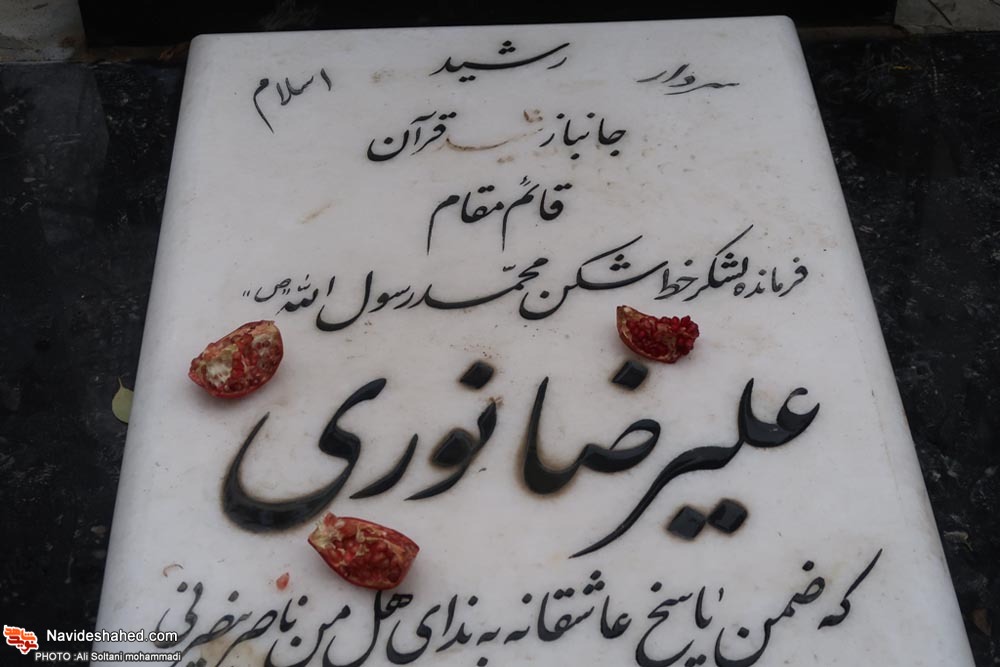 سردار رشید اسلام
جانباز شهید قرآن
قائم مقام
فرمانده لشکر خط شکن محمد رسول الله "ص"
علیرضا نوری
که ضمن پاسخ عاشقانه به ندای هل من ناصر ینصرنی
Navideshahed.com
PHOTO :Ali Soltani mohammadi